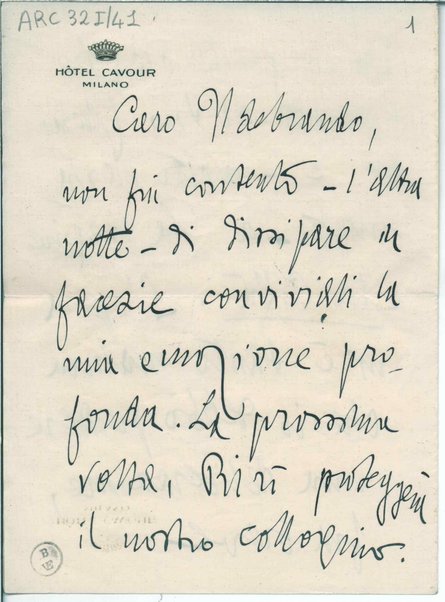 ARC 32 I/41
1
HÔTEL CAVOUR
MILANO
Caro Ildebrando,
non fui contento – l'altra
notte – di dissipare in
facezie conviviali la
mia emozione pro-
fonda. La prossima
volta, Rirì proteggerà
il nostro colloquio.